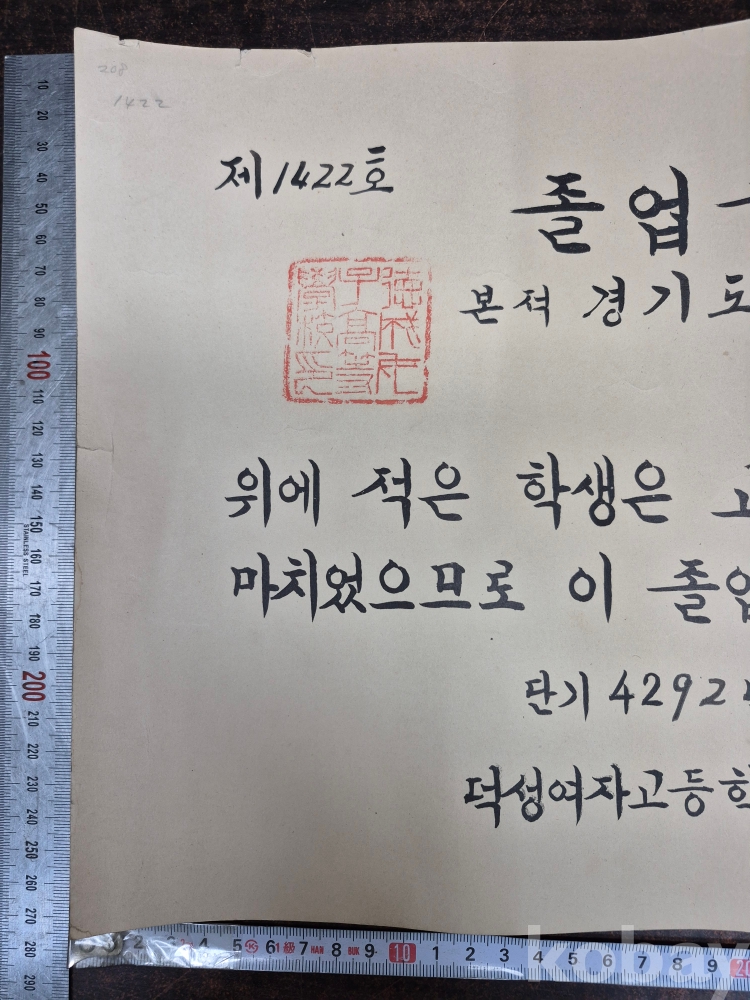 208
1422
제 1422호
졸업
본적 경기도
德成女
子高等
學校印
위에 적은 학생은 고
마치었으므로 이 졸업
단기 4292년
덕성여자고등학
10
20
30
40
50
60
70
80
90
100
110
120
130
140
150
160
170
180
190
200
210
220
230
240
250
260
270
280
290
STAINLESS STEEL
2 3 4 5 6 1級 7 HAN 8 BUK 9 10 1 2 3 4 5 6 7 8 9 20
kobay